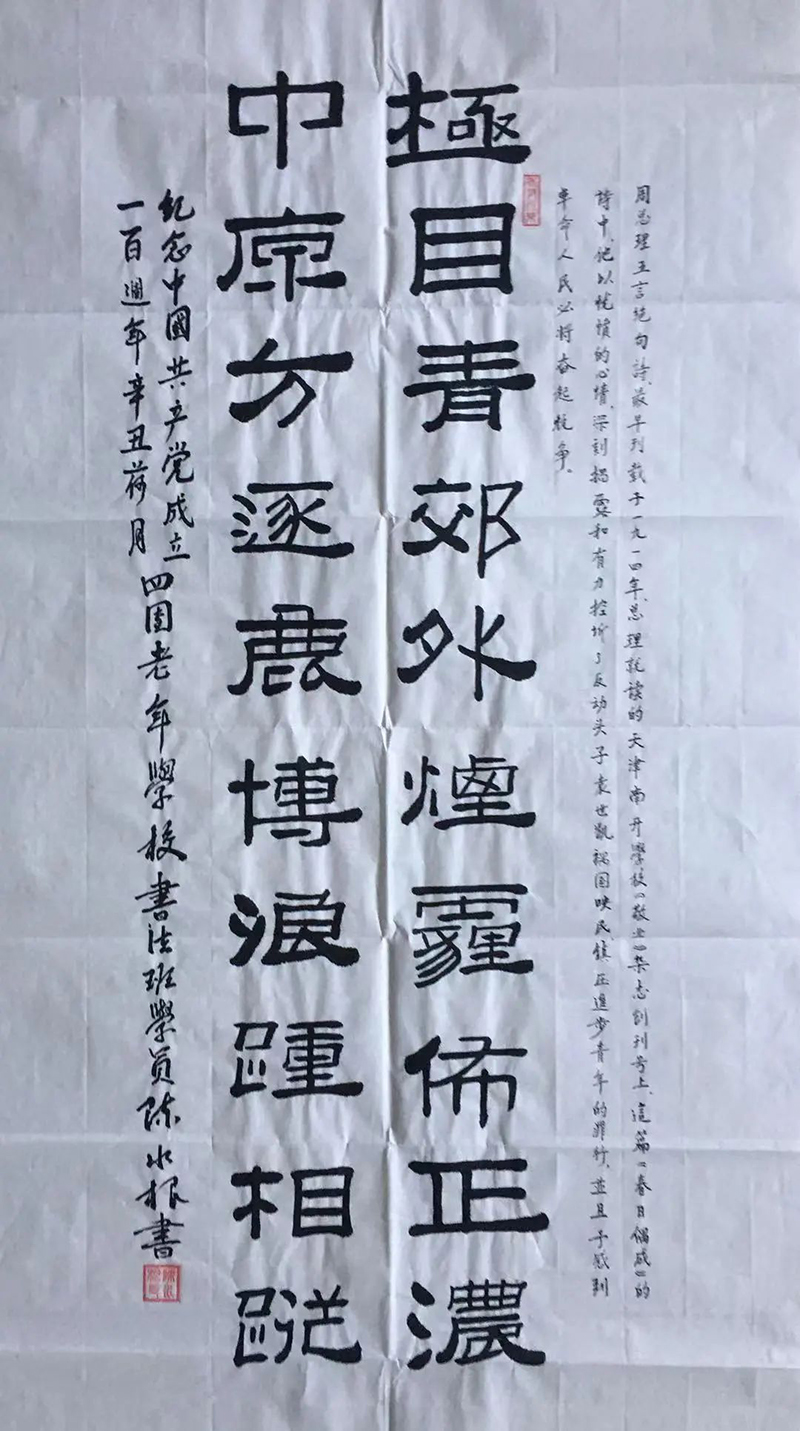 周总理五言绝句詩、最早刊载于一九一四年、总理就读的天津南开學校《敬业》杂志创刊号上、這篇《春日偶成》的
詩中、他以忧愤的心情、深刻揭露和有力控诉了反动头子袁世凯祸国映民镇压進步青年的罪行、並且予感到
革命人民必将奋起抗争、
極目青郊外煙霾佈正濃
中原方逐鹿博浪踵相蹤
紀念中國共产党成立
一百週年辛丑荷月
四团老年學校書法班學員陈水根書